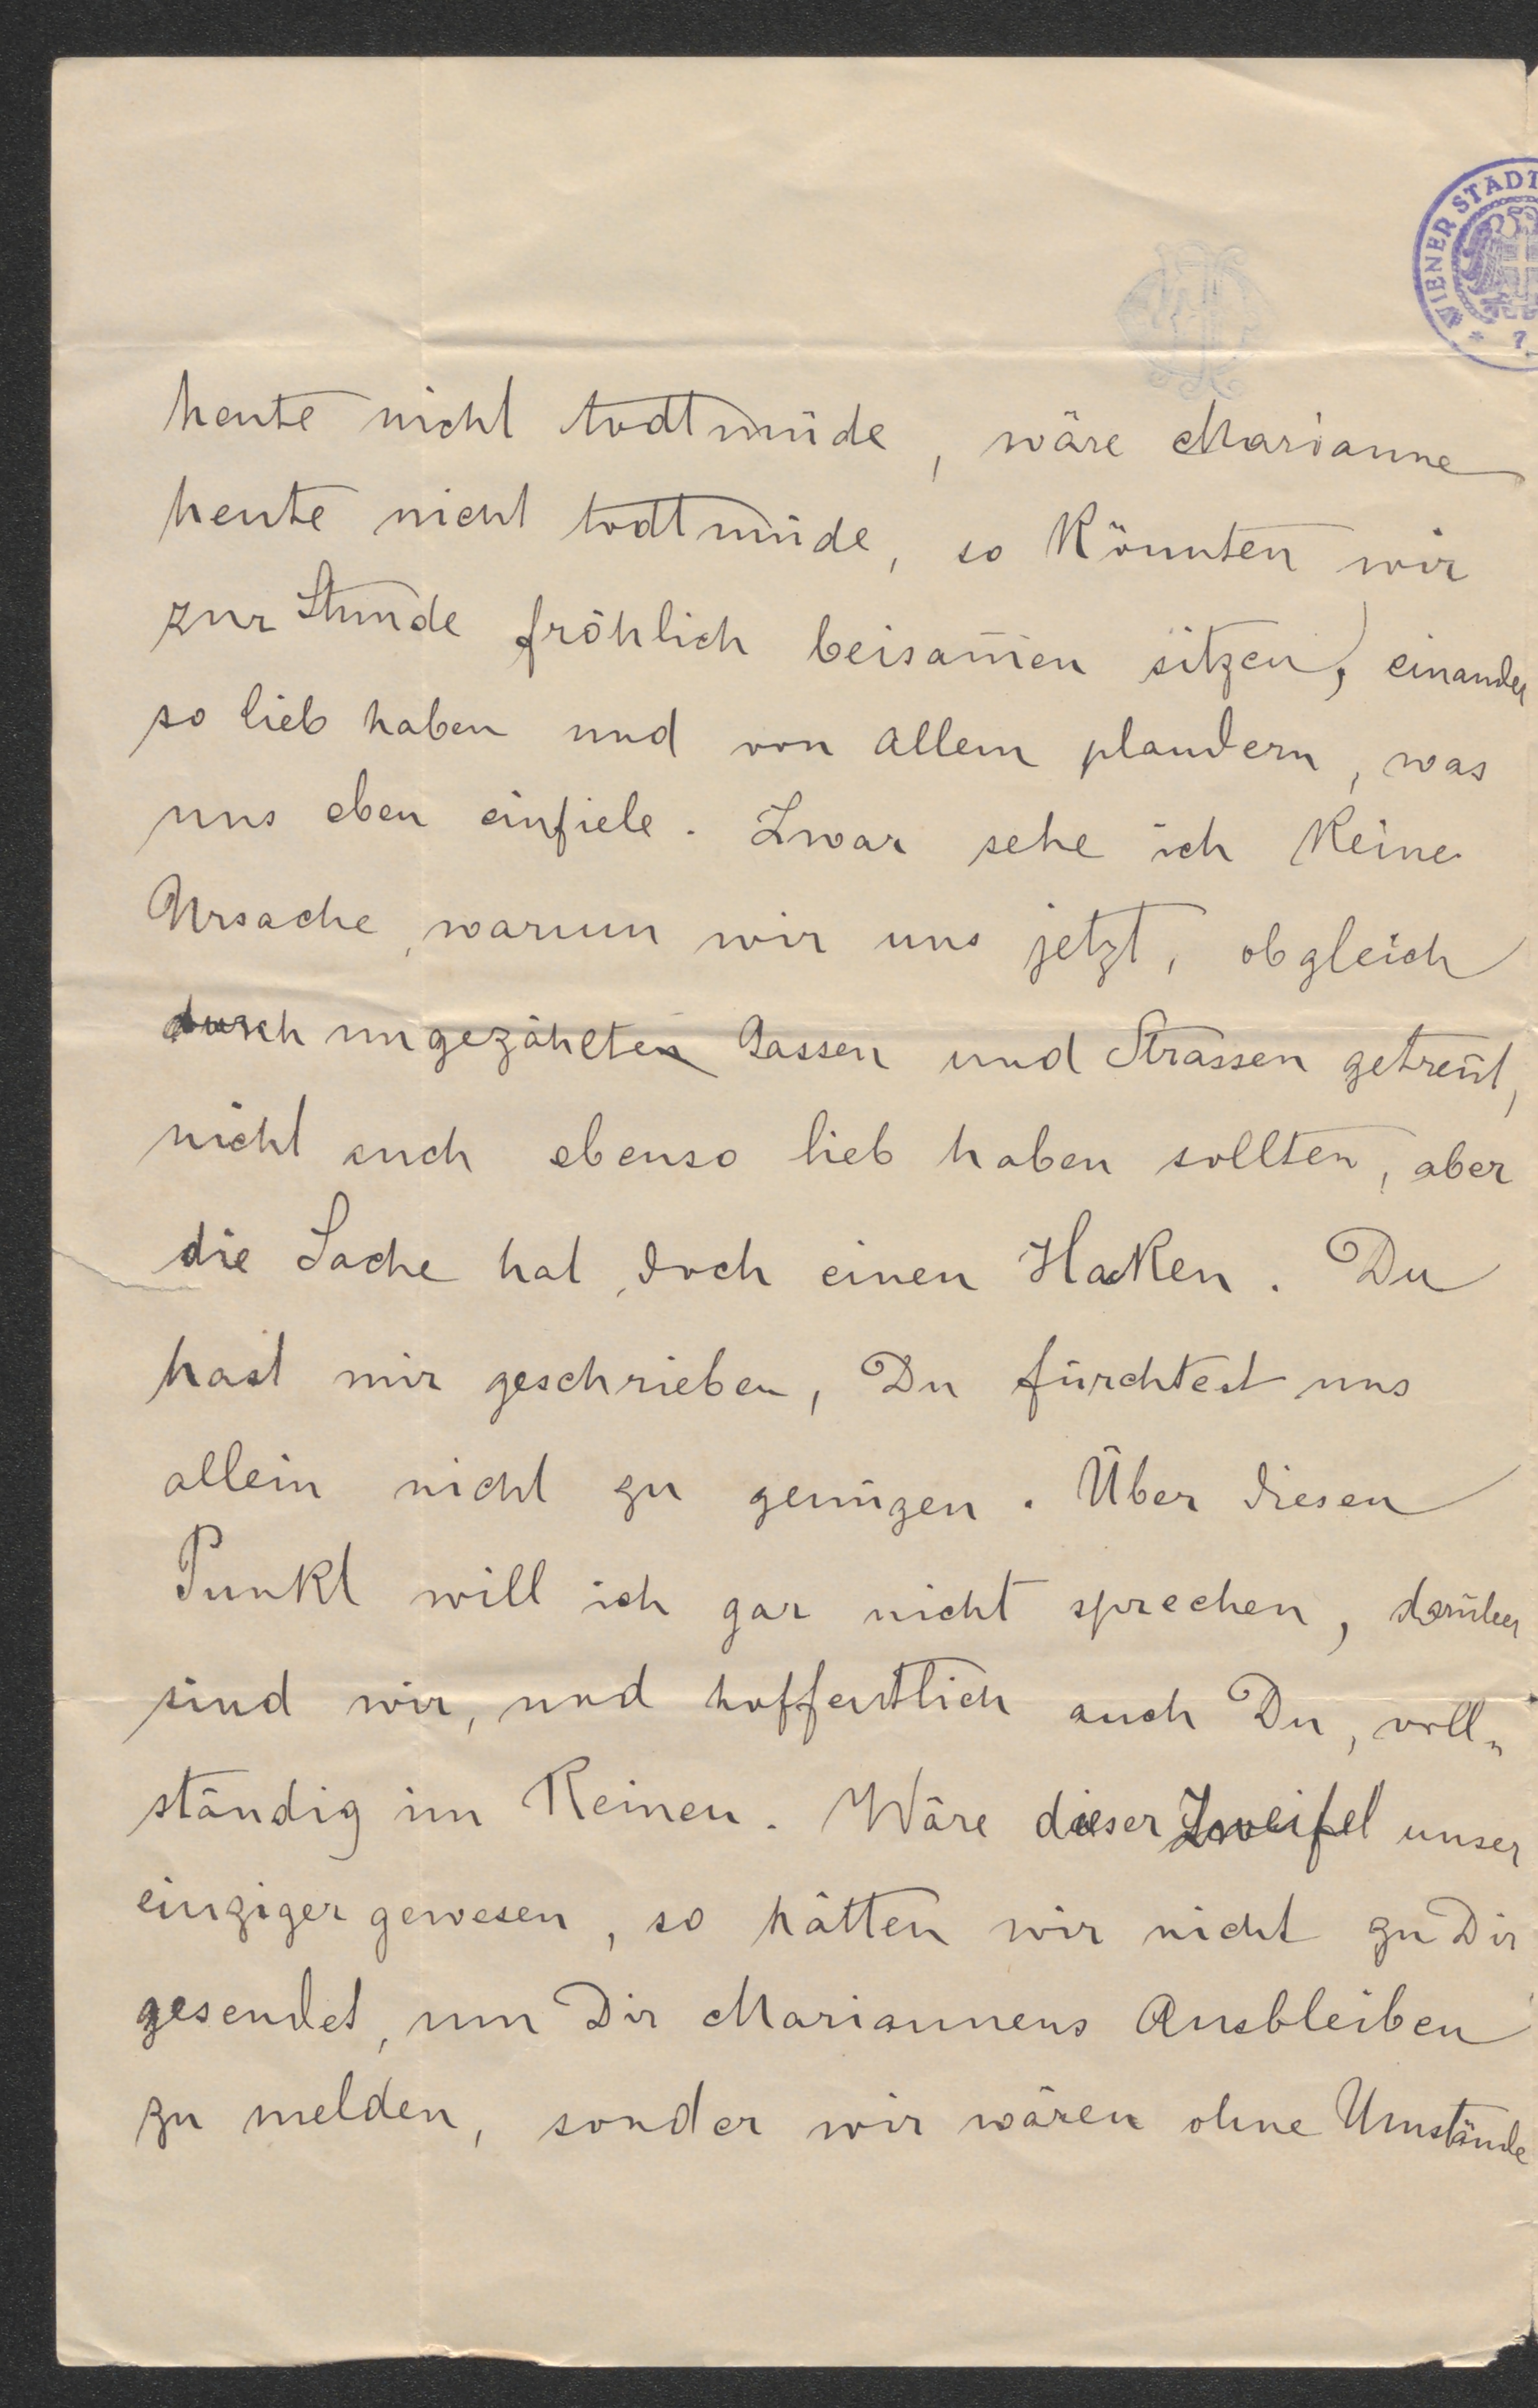 WIENER STADT
7.
heute nicht todtmüde, wäre Marianne
heute nicht todtmüde, so könnten wir
zur Stunde fröhlich beisam̅en sitzen, einander
so lieb haben und von allem plaudern, was
uns eben einfiele. Zwar sehe ich keine
Ursache, warum wir uns jetzt, obgleich
durch ungezählten Gassen und Strassen getren̅t,
nicht auch ebenso lieb haben sollten, aber
die Sache hat doch einen Haken. Du
hast mir geschrieben, Du fürchtest uns
allein nicht zu genügen. Über diesen
Punkt will ich gar nicht sprechen, darüber
sind wir, und hoffentlich auch Du, voll„
ständig im Reinen. Wäre dieser Zweifel unser
einziger gewesen, so hätten wir nicht zu Dir
gesendet, um Dir Mariannens Ausbleiben
zu melden, sonder wir wären ohne Umstände